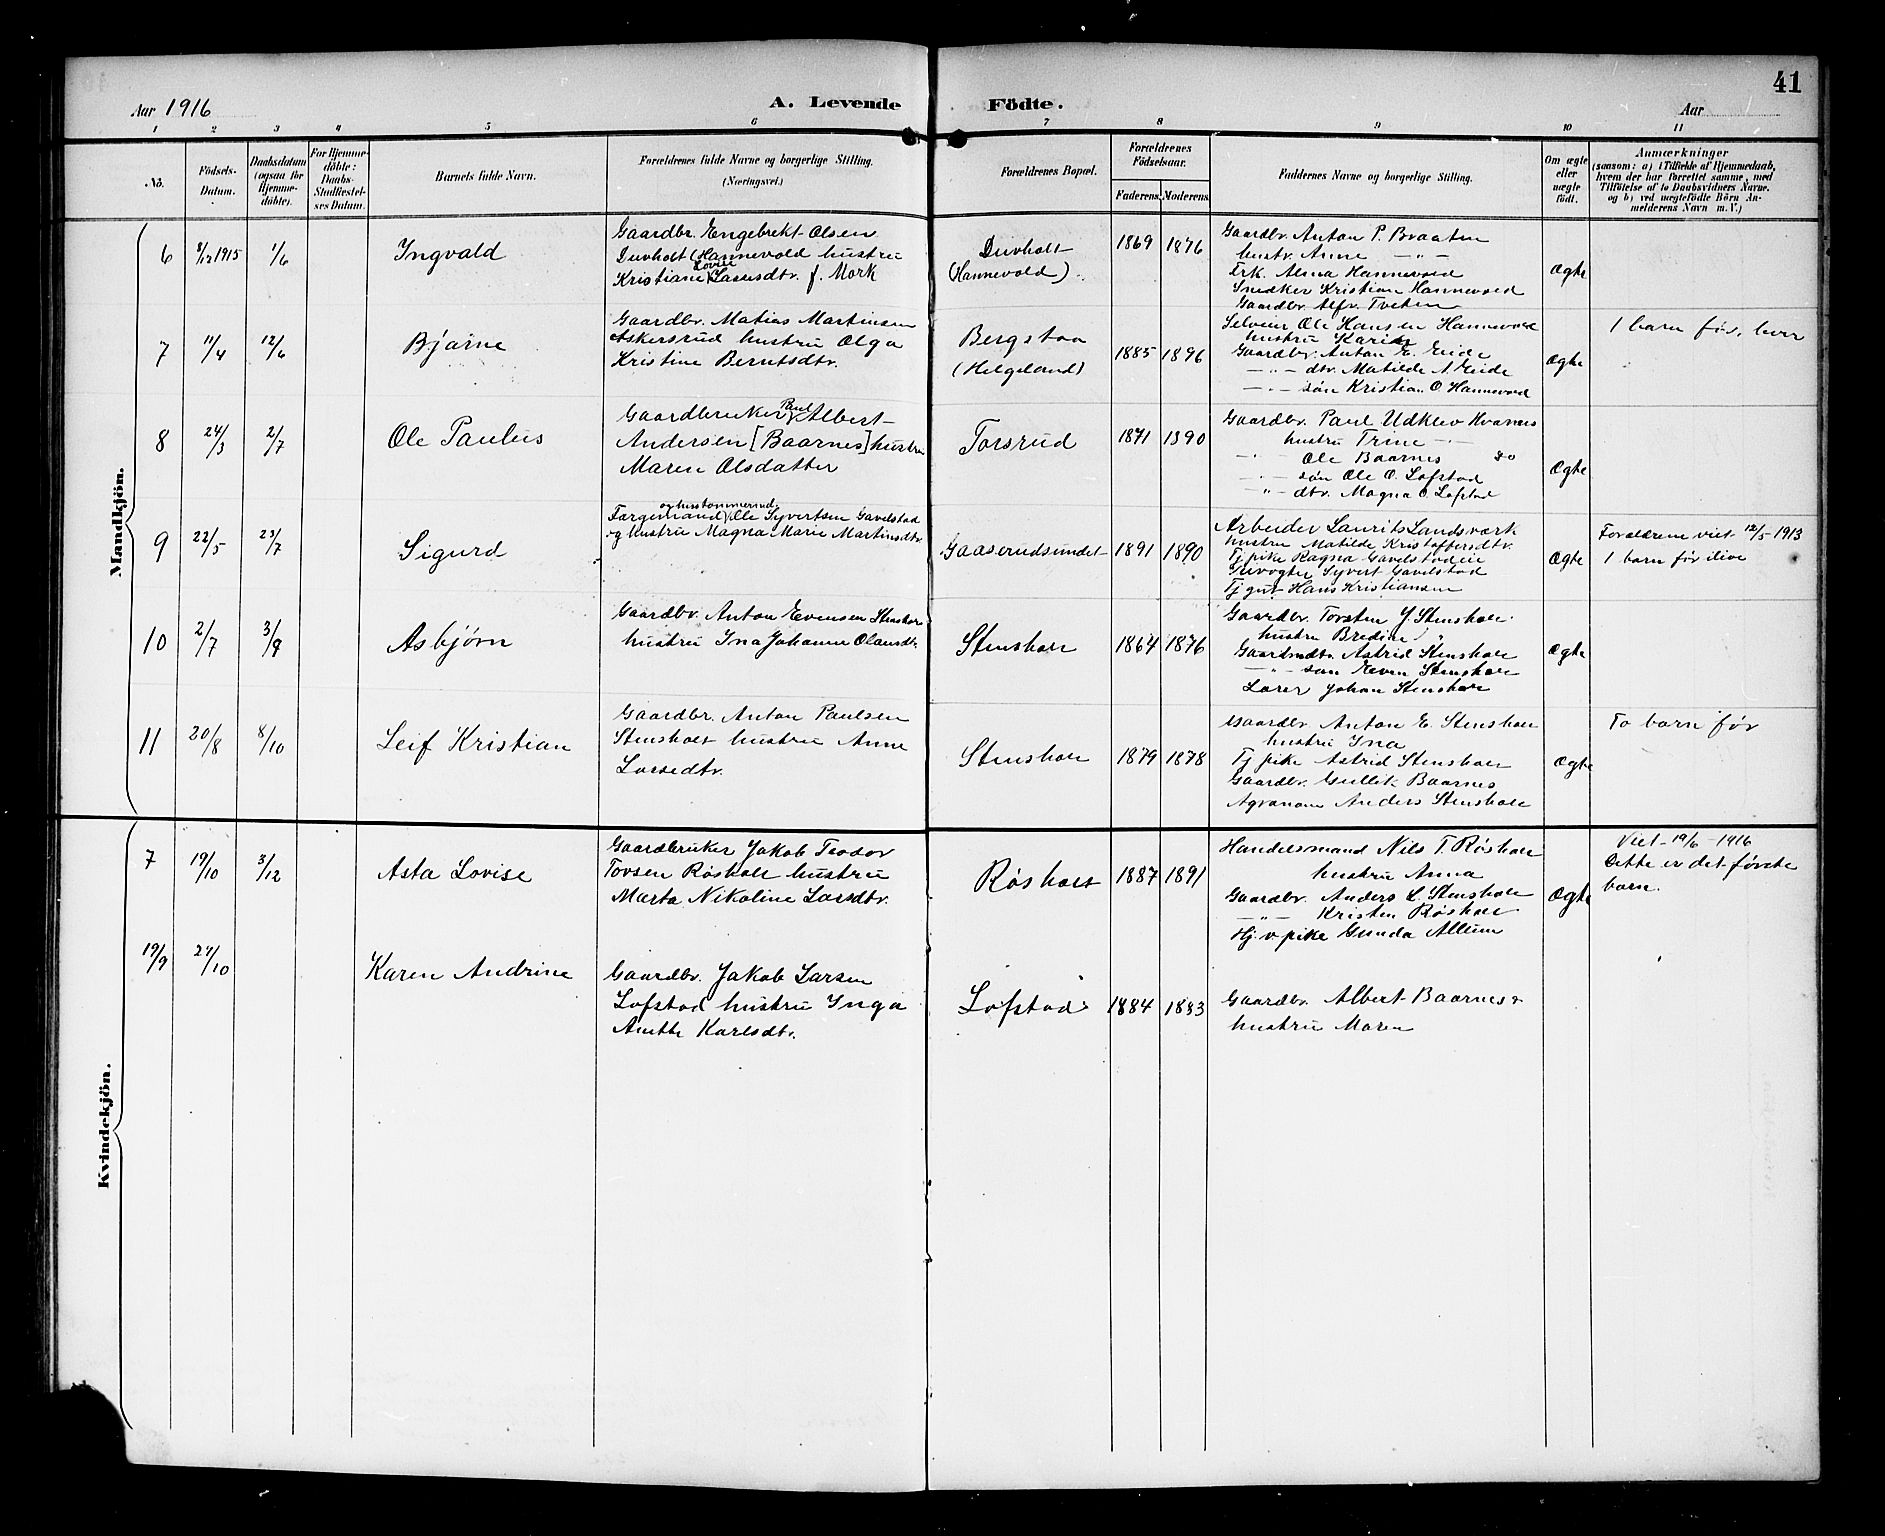 41
Aar 1916 A. Levende Födte. Aar
1 2 3 4 5 6 7 8 9 10 11
No.
Födsels-
Datum.
Daabsdatum
(ogsaa for
Hjemme-
döbte).
For Hjemme-
döbte:
Daabs-
Stadfestel-
ses Datum.
Barnets fulde Navn.
Forældrenes fulde Navne og borgerlige Stilling.
(Næringsvei.)
Forældrenes Bopæl.
Forældrenes
Födselsaar.
Faderens. Moderens.
Faddernes Navne og borgerlige Stilling.
Om ægte
eller
uægte
födt.
Anmærkninger
(saasom: a) i Tilfælde af Hjemmedaab,
hvem der har forrettet samme, med
Tilföielse af to Daabsvidners Navne.
og b) ved uægtefödte Börn An-
melderens Navn m. V.)
Mandkjön.
6 8/12 1915 1/6 Ingvald
Gaardbr. Engebrekt Olsen
Duvholt (Hannevold hustru
Kristiane Lovise Lassesdtr. f. Mork
Duvholt
(Hannevold)
1869 1876
Gaardbr. Anton P. Braaten
hustr. Anne — " —
Frk. Alma Hannevold
Snedker Kristian Hannevold
Gaardbr. Alfr. Tveten
Ægte
7 11/4 12/6 Bjarne
Gaardbr. Matias Martinsen
Askersrud hustru Olga
Kristine Berntsdtr.
Bergstaa
(Helgeland)
1885 1896
Selveier Ole Hansen Hannevold
hustru Karin
Gaardbr. Anton E. Eide
— " — dtr. Matilde A. Eide
— " — søn Kristian O Hannevold
Ægte
1 barn før,
8 24/3 2/7 Ole Paulus
Gaardbruker Paul Albert
Andersen [Baarnes] hustru
Maren Olsdatter
Torsrud
1871 1890
Gaardbr. Paul Udklev Hvarnes
hustru Trine — " —
— " — Ole Baarnes do
— " — søn Ole O. Lofstad
— " — dtr. Magna O. Lofstad
Ægte
9 22/5 23/7 Sigurd
og hustømmerm
Færgemand Ole Syvertsen Gavelstad
og hustru Magna Marie Martinsdtr.
Gaaserudsundet
1891 1890
Arbeider Laurits Landsverk
hustru Matilde Kristoffersdtr.
Tj pike Ragna Gavelstadeie
Syvert Gavelstad
Tj gut Hans Kristiansen
Ægte
Forældrene viet 12/5 1913
1 barn før ilive
10 2/7 3/9 Asbjørn
Gaardbr. Anton Evensen Stensholt
hustru Ina Johanne Olausdtr.
Stensholt
1864 1876
Gaardbr. Torsten J. Stensholt
hustru Bredine "
Gaardmdtr. Astrid Stensholt
— " — søn Even Stensholt
Lærer Johan Stensholt
Ægte
11 20/8 8/10 Leif Kristian
Gaardbr. Anton Paulsen
Stensholt hustru Anne
Larsedtr.
Stensholt
1879 1878
Gaardbr. Anton E. Stensholt
hustru Ina
Tj pike Astrid Stensholt
Gaardbr. Gullik Baarnes
Agronom Anders Stensholt
Ægte
To barn før
Kvindekjön.
7 19/10 3/12 Asta Lovise
Gaardbruker Jakob Teodor
Torsen Røsholt hustru
Marta Nikoline Larsdtr.
Røsholt
1887 1891
Handelsmand Nils T. Røsholt
hustru Anna
Gaardbr. Anders L. Stensholt
— " — Kristen Røsholt
Hj.v. pike Gunda Allum
Ægte
Viet 19/6 1916
Dette er det første
barn.
19/9 29/10 Karen Andrine
Gaardbr. Jakob Larsen
Lofstad hustru Inga
Anette Karlsdtr.
Lofstad
1884 1883
Gaardbr. Albert Baarnes &
hustru Maren